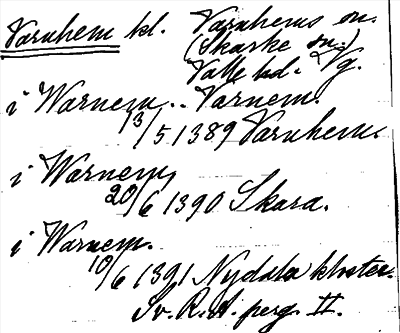 Varnhem kl. Varnhems sn.
(Skarke sn.)
Valle hd. Vg.
i Warnem.. Varnem.
13/5 1389 Varnhem.
i Warnem,
20/6 1390 Skara.
i Warnem.
10/6 1391 Nydala kloster.
Sv. R. A. perg. II.